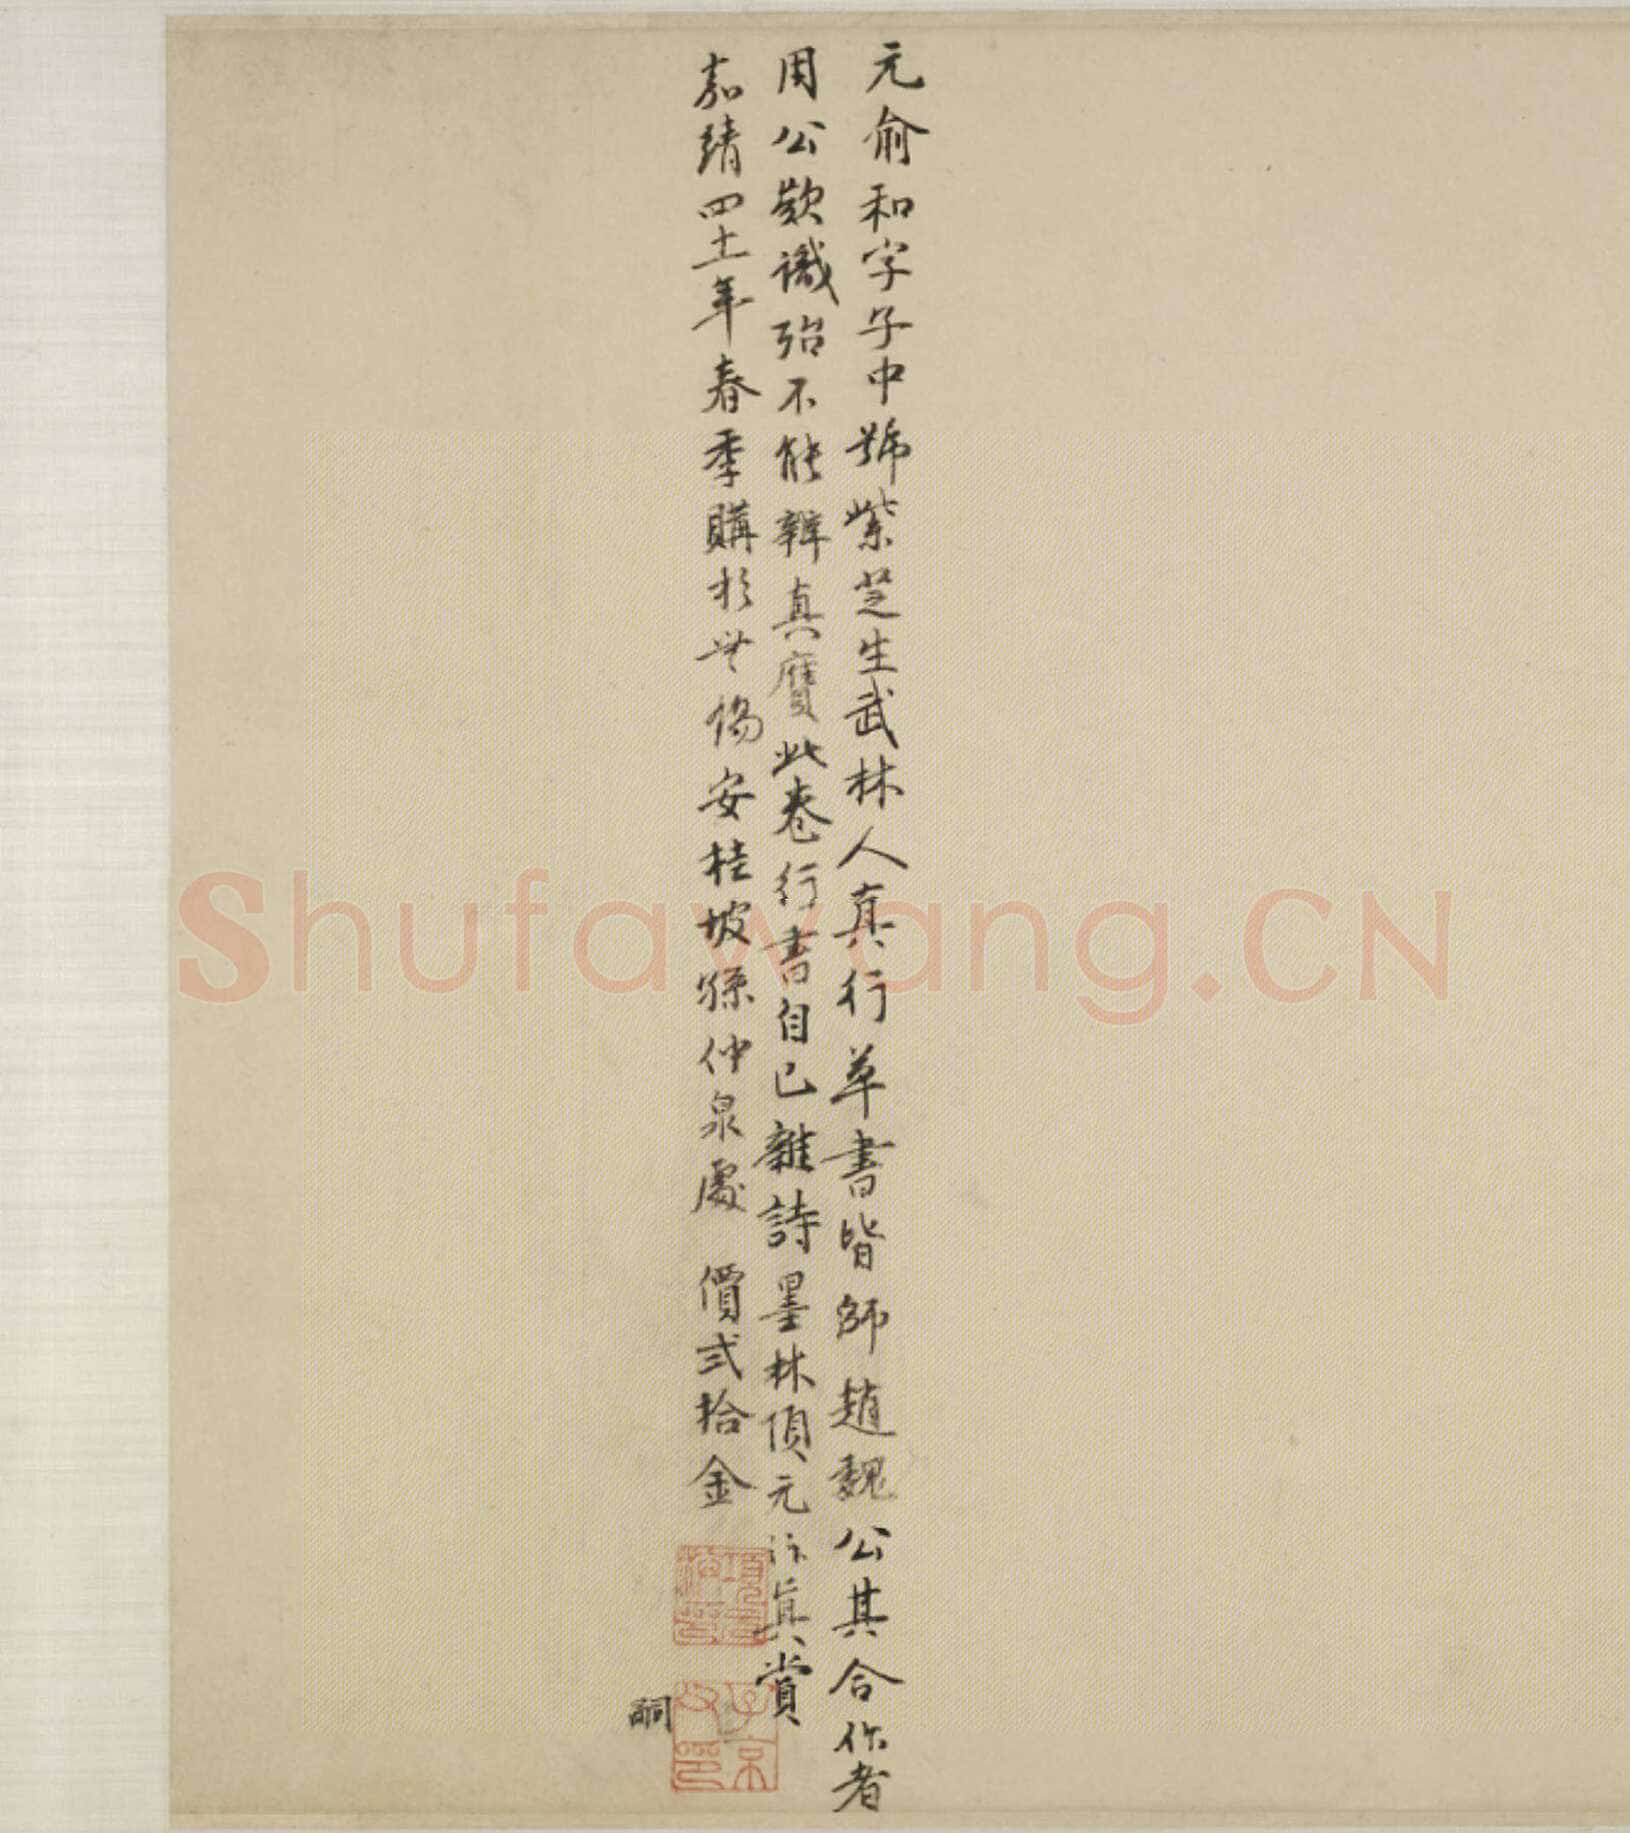 元俞和字子中號紫芝生武林人真行草書皆師趙魏公其合作者
用公欵識殆不能辨真贋此卷行書自已雜詩墨林項元汴真賞
嘉靖四十一年春季購於無錫安桂坡孫仲泉處 價弍拾金
項元汴印
子京父印
嗣
Shufawang.CN